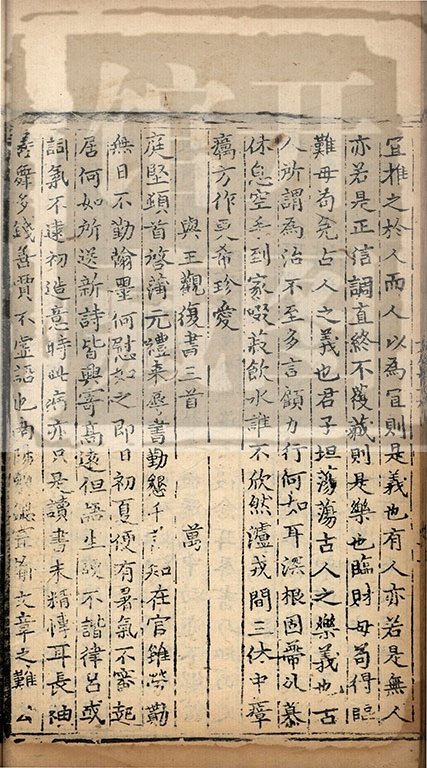 宜推之於人而人以為宜則是義也有人亦若是無人
亦若是正信調直終不覆藏則是樂也臨財毋苟得臨
難毋苟免古人之義也君子坦蕩蕩古人之樂義也古
人所謂為治不至多言顧力行何如耳深根固蔕慕
休息空手到家啜菽飲水誰不欣然瀘戎間三伏中瘴
癘方作更希珍愛
與王觀復書三首 萬
庭堅頓首啓蒲元禮來辱書勤懇千知在官雖勞勤
無日不勤翰墨何慰如之即日初夏便有暑氣不審起
居何如所送新詩皆興寄高遠但語生硬不諧律呂或
詞氣不逮初造意時此病亦只是讀書未精博耳長袖
善舞多錢善賈不虛語也南陽劉勰嘗論文章之難云